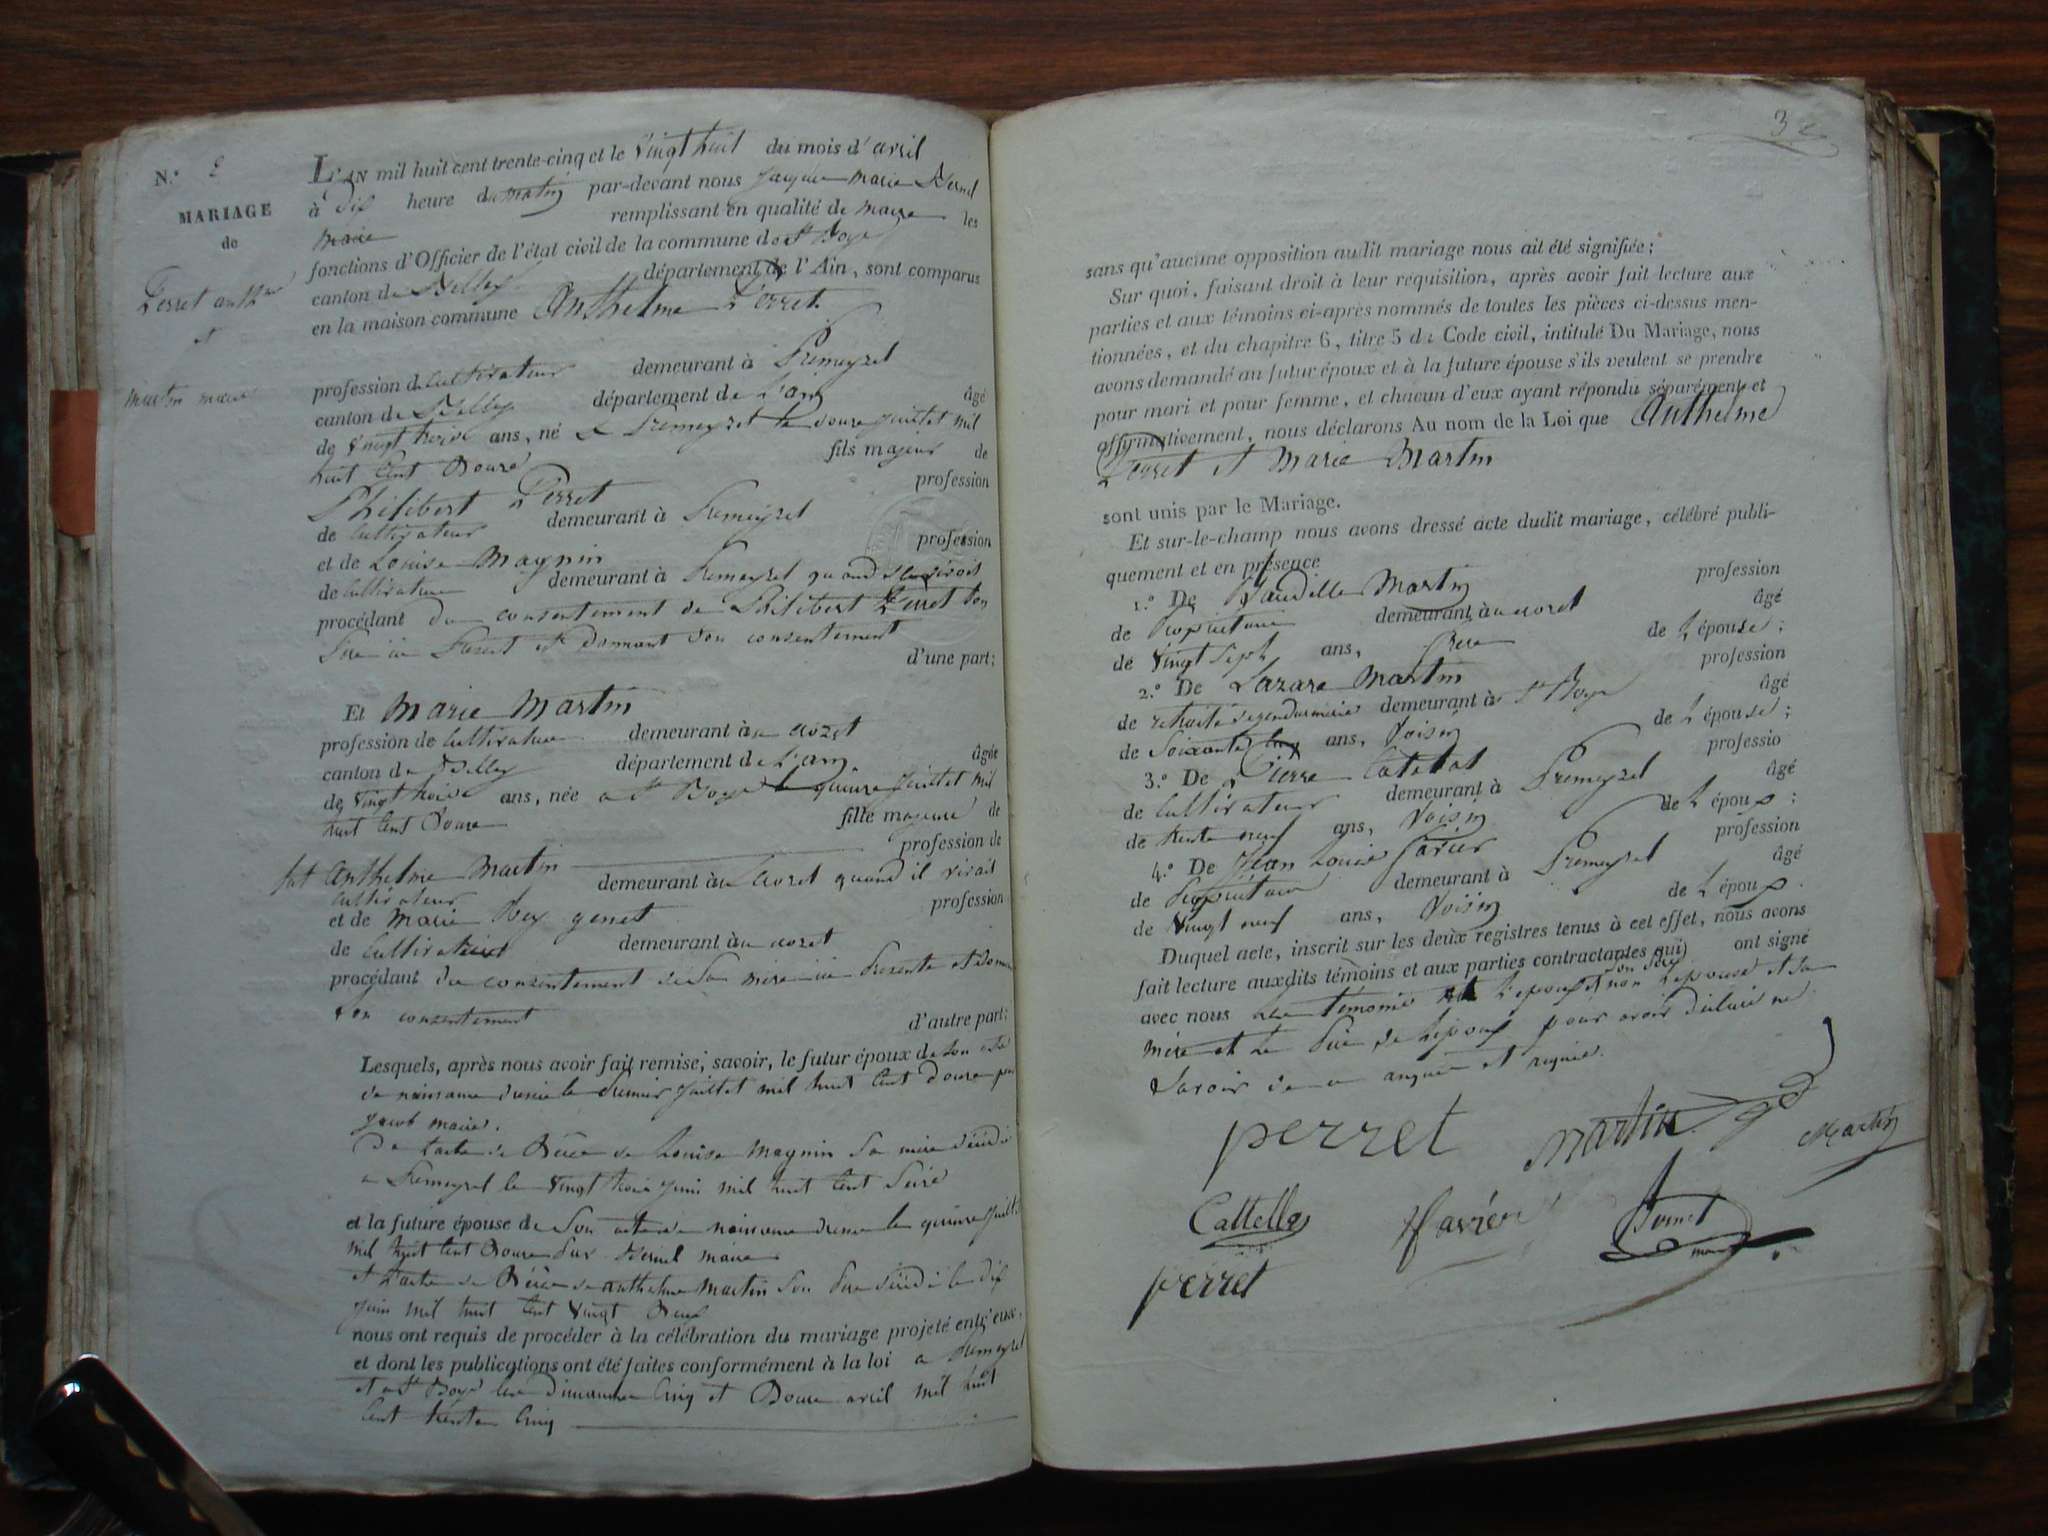 N.° 2
MARIAGE
de
Perret anth.me
et
martin marie
L'AN mil huit cent trente-cinq et le Vingt huit du mois d'avril
à dix heure du matin par-devant nous jacques marie
maire remplissant en qualité de maire les
fonctions d'Officier de l'état civil de la commune de St Boys
canton de Belley département de l'Ain, sont comparus
en la maison commune Anthelme Perret
profession de Cultivateur demeurant à Premeyzel
canton de Belley département de L'ain âgé
de Vingt trois ans, né à Premeyzel le douze juillet mil
huit Cent Douze fils majeur de
Philibert Perret profession
de Cultivateur demeurant à Premeyzel
et de Louise Magnin profession
de Cultivateur demeurant à Premeyzel quand elle vivoit
procédant du consentement de Philibert Perret son
Père ici Présent et donnant son consentement
d'une part;
Et Marie Martin
profession de Cultivateur demeurant au
canton de Belley département de L'ain âgée
de Vingt trois ans, née a St Boys le quinze juillet mil
huit Cent Douze fille majeure de
fut Anthelme Martin profession de
Cultivateur demeurant au quand il vivait
et de Marie Rey genet profession
de Cultivateur demeurant au
procédant du consentement de Sa mère ici Présente et donne
son consentement
d'autre part;
Lesquels, après nous avoir fait remise; savoir, le futur époux de Son acte
de naissance dressé le juillet mil huit Cent douze par
jacob maire.
De l'acte de Décé de Louise Magnin Sa mère décédé
a Premeyzel le Vingt trois juin mil huit Cent Seize
et la future épouse de Son acte de naissance dressé le quinze juillet
mil huit Cent Douze Par maire
et L'acte de Décé de anthelme Martin Son Père décédé le dix
juin mil huit Cent Vingt Deux
nous ont requis de procéder à la célébration du mariage projeté entr'eux.
et dont les publications ont été faites conformément à la loi a Premeyzel
et a St Boys les Dimanche Cinq et Douze avril mil huit
Cent trente Cinq
3
sans qu'aucune opposition audit mariage nous ait été signifiée;
Sur quoi, faisant droit à leur réquisition, après avoir fait lecture aux
parties et aux témoins ci-après nommés de toutes les pièces ci-dessus men-
tionnées, et du chapitre 6, titre 5 du Code civil, intitulé Du Mariage, nous
avons demandé au futur époux et à la future épouse s'ils veulent se prendre
pour mari et pour femme, et chacun d'eux ayant répondu séparément et
affirmativement, nous déclarons Au nom de la Loi que Anthelme
Perret et Marie Martin
sont unis par le Mariage.
Et sur-le-champ nous avons dressé acte dudit mariage, célébré publi-
quement et en présence
1.° De Martin profession
de Propriétaire demeurant au âgé
de Vingt Sept ans, frere de L'épouse;
2.° De Lazare Martin profession
de retraité de gendarmerie demeurant à St Boys âgé
de Soixante ans, Voisin de L'épouse;
3.° De Pierre Catelat professio
de Cultivateur demeurant à Premeyzel âgé
de trente neuf ans, Voisin de L'époux;
4.° De Jean Louis favier profession
de Propriétaire demeurant à Premeyzel âgé
de Vingt neuf ans, Voisin de L'époux.
Duquel acte, inscrit sur les deux registres tenus à cet effet, nous avons
fait lecture auxdits témoins et aux parties contractantes qui ont signé
avec nous les témoins et L'époux et non L'épouse et sa
mère et Le Père de Lépoux pour avoir déclaré ne
Savoir de ce enquis et requis.
perret Martin Martin
Cattella favier
maire
perret